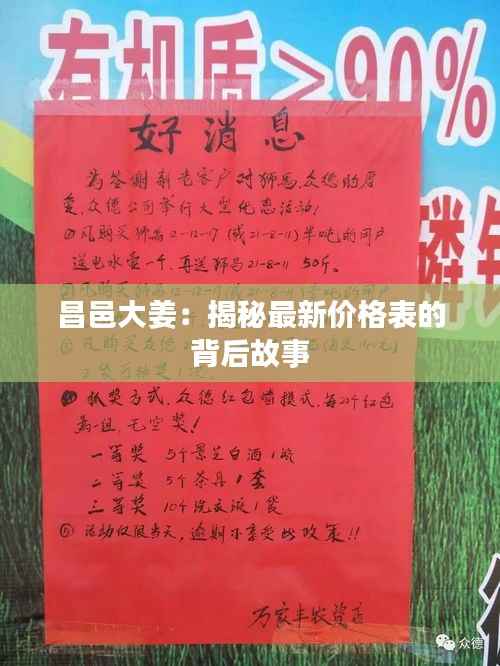 有机质≥90%
好消息
为答谢新老客户对狮马、众德的厚
爱,众德公司举行大型优惠活动!
①凡购买狮马12-12-17(或21-8-11)半吨的用户
送电水壶一个,再送狮马21-8-11 50斤。
昌邑大姜：揭秘最新价格表的
背后故事
奖方式,众德红包墙模式,每20个红包
为一组,无空奖!
一等奖 5个景芝白酒1瓶
二等奖 5个茶具1套
三等奖 10个洗衣液1袋
⑤活动仅限当天,逾期不享受此政策!!
万家丰农资店
众德